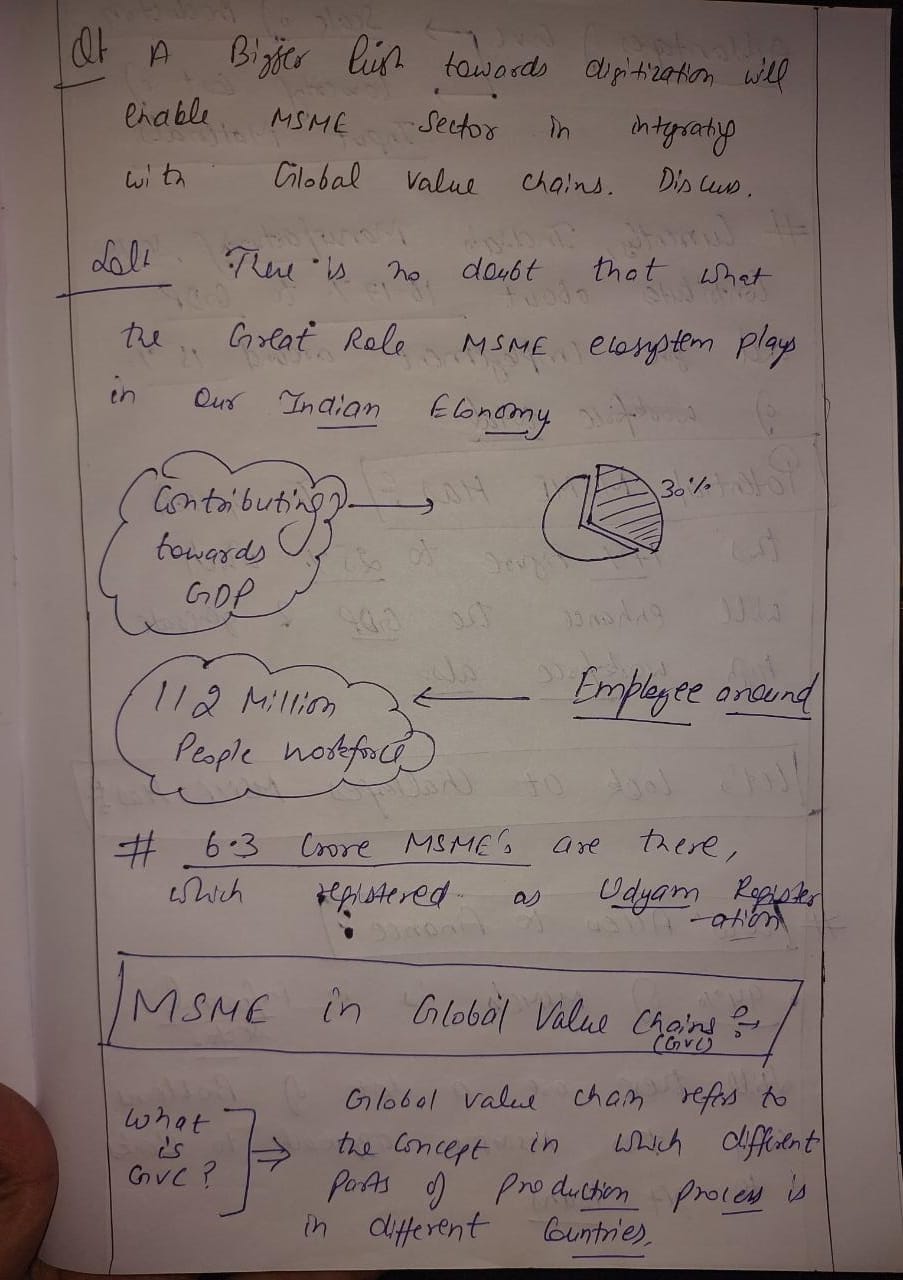 Q1 A Bigger Push towards digitization will
enable MSME Sector in integrating
with Global Value chains. Discuss.
Sol: There is no doubt that what
the Great Role MSME ecosystem plays
in Our Indian Economy
Contributing
towards
GDP
30%
112 Million
People workforce
Employee around
# 6.3 Crore MSME's are there,
which registered as Udyam Register
-ation
MSME in Global Value Chains :-
(GVC)
What
is
GVC ?
Global value chain refers to
the Concept in which different
Parts of production process is
in different Countries.